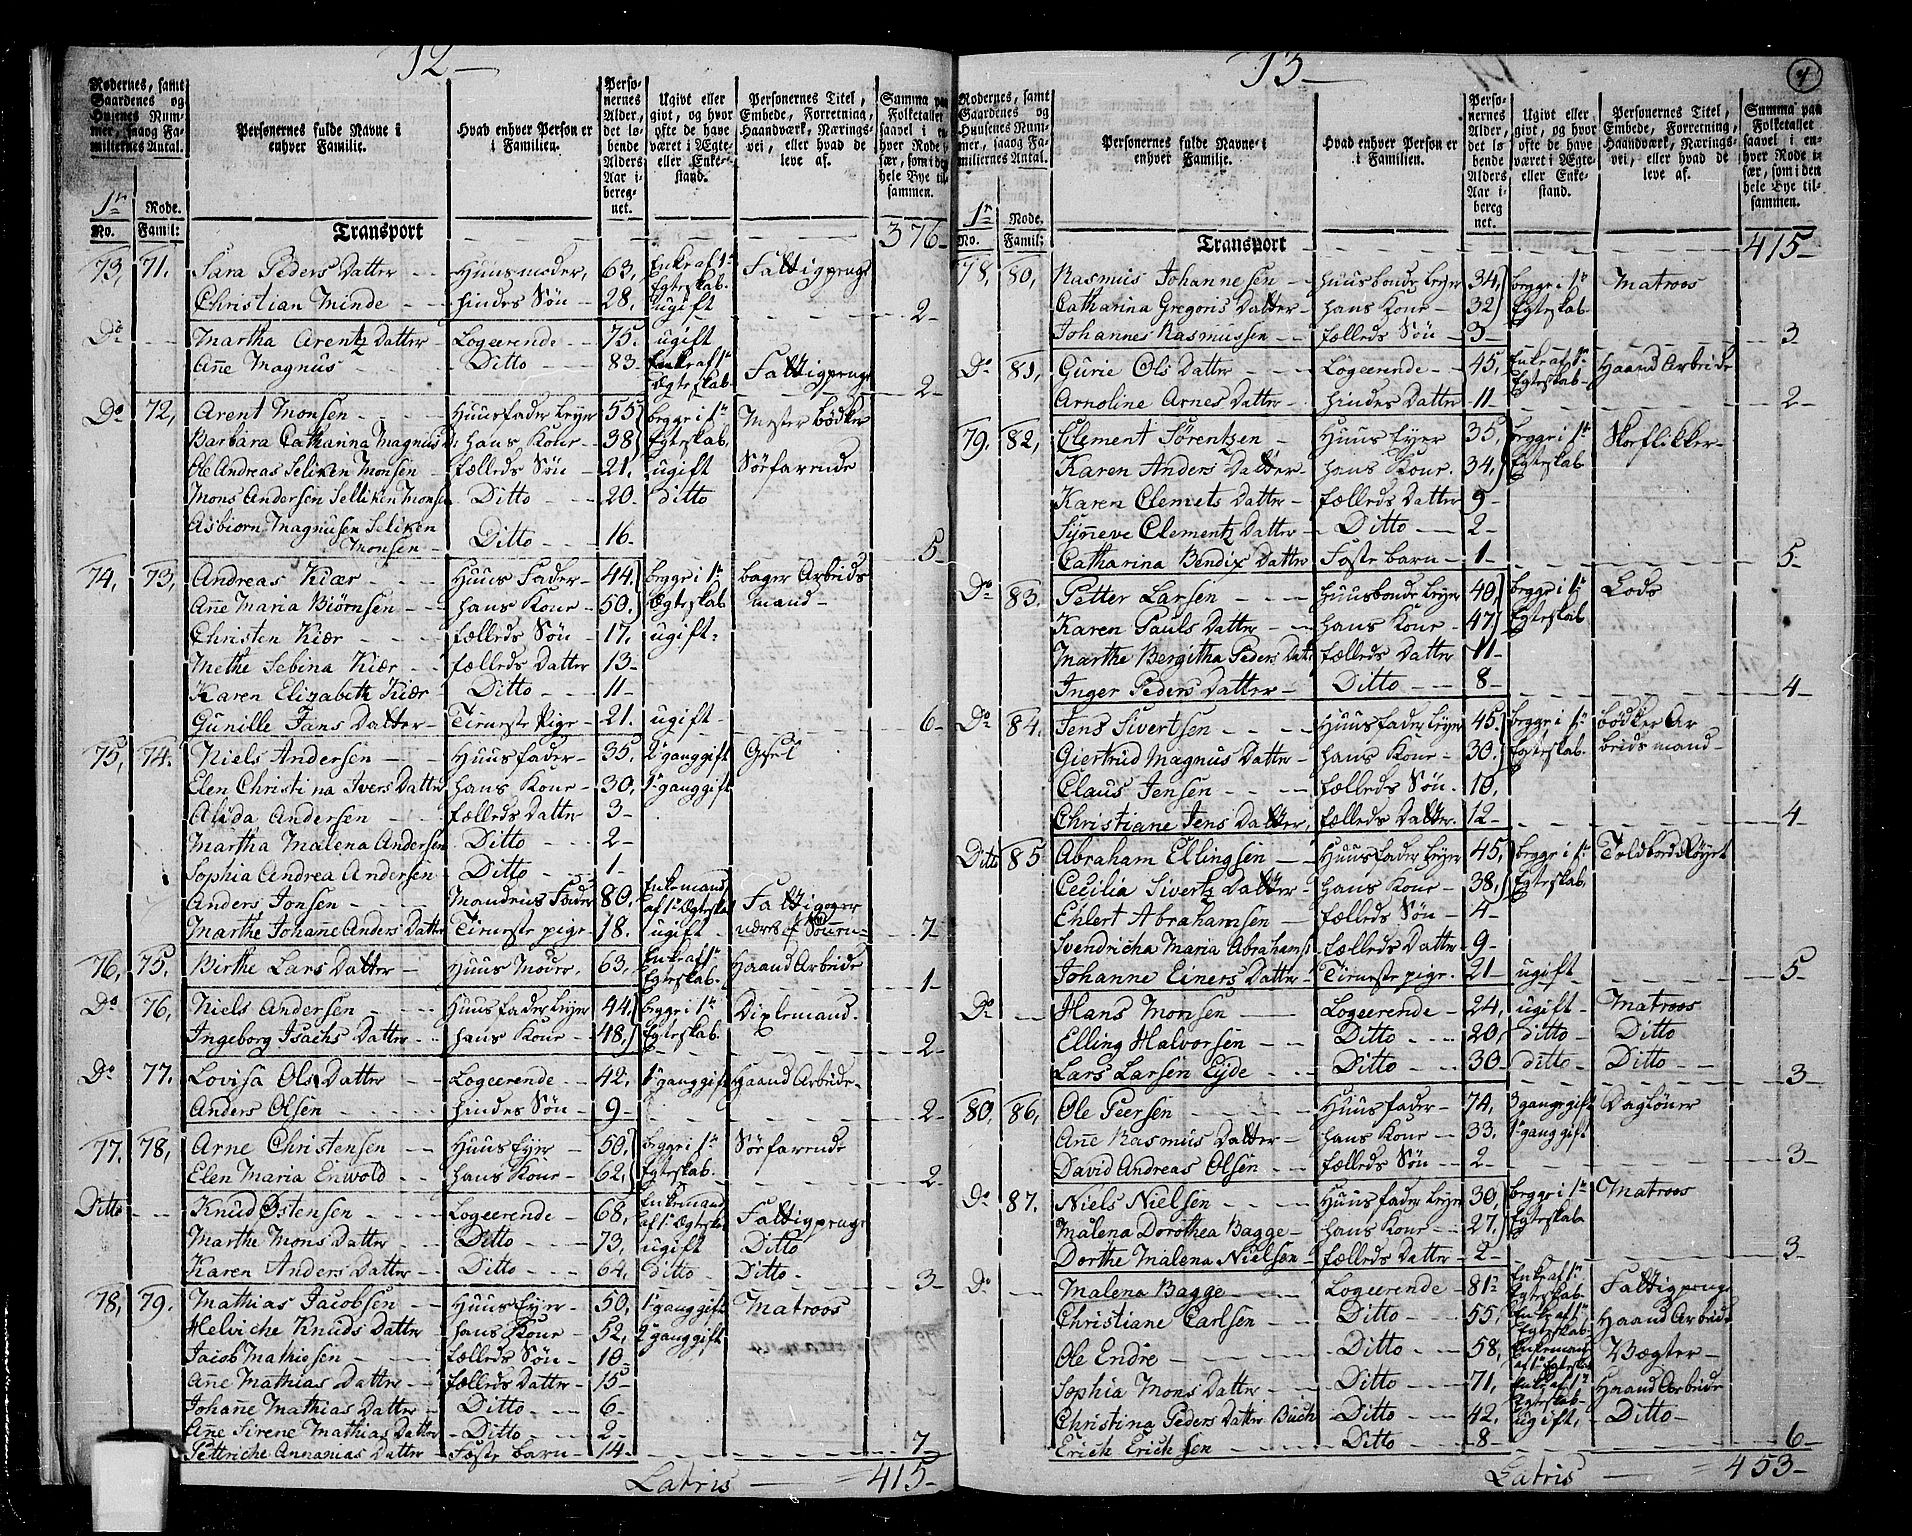 12
Rodernes, samt Gaardenes og Husenes Nummer, saaog Familiernes Antal.
Personernes fulde Navne i enhver Familie.
Hvad enhver Person er i Familien.
Personernes Alder, det løbende Alders Aar iberegnet.
Ugivt eller givt, og hvor ofte de have været i Ægte- eller Enkestand.
Personernes Titel, Embede, Forretning, Haandværk, Næringsvei, eller hvad de leve af.
Summa paa Folketallet saavel i enhver Rode især, som i den hele Bye tilsammen.
1n Rode.
No. Famil:
Transport 376
73, 71. Sara Peders Datter Huusmoder, 63, Enke af 1n Egteskab. Fattigpenge
Christian Minde hindes Søn 28, ugift 2
Do Martha Arentz Datter Logeerende 75. ugift
Anne Magnus Ditto 83 Enke af 1n Ægteskab Fattigpenge 2
Do 72, Arent Monsen Huusfader Leyer 55 begge i 1n Mester bødker
Barbara Catharina Magnus D: hans Kone 38 Egteskab.
Ole Andreas Seliken Monsen fælleds Søn 21. ugift Søefarende
Mons Andersen Selliken Monsen Ditto 20. ditto
Asbiorn Magnusen Seliken Monsen Ditto 16. 5
74, 73, Andreas Kiær Huus Fader 44. begge i 1n bager Arbeids
Anne Maria Biørnsen hans Kone 50. Ægteskab mand
Christen Kiær fælleds Søn 17. ugift
Methe Sebina Kiær fælleds Datter 13
Karen Elizabeth Kiær Ditto 11
Gunille Jans Datter Tieneste Pige 21. ugift 6
75, 74. Niels Andersen Huusfader 35. 2n gang gift Gesel
Elen Christina Ivers Datter hans Kone 30, 1n gang gift
Alida Andersen fælleds Datter 3
Martha Malena Andersen Ditto 2
Sophia Andrea Andersen Ditto 1
Anders Jonsen Mandens Fader 80, Enkemand af 1n Ægteskab Fattig og er
Marthe Johanne Anders Datter Tieneste pige 18. ugift 7
76, 75. Birthe Lars Datter Huus Moder, 63, Enke af 1n Egteskab. Haand Arbeide 1
Do 76, Niels Andersen Huusfader Leyer 44, begge i 1n Diplemand.
Ingeborg Isachs Datter hans Kone 48, Egteskab. 2
Do 77. Lovisa Ols Datter Logeerende 42, 1n gang gift Haand Arbeide
Anders Olsen hindes Søn 9 2
77. 78, Arne Christensen Huus Eyer 50, begge i 1n Søefarende
Elen Maria Enwold hans Kone 62, Egteskab. 2
Ditto Knud Østensen Logeerende 68, Enkemand af 1n Ægteskab Fattigpenge
Marthe Mons Datter Ditto 73, ugift Ditto
Karen Anders Datter Ditto 64. ditto Ditto 3
78, 79. Mathias Jacobsen Huus Eyer 50, 1n gang gift Matroos
Helviche Knuds Datter hans Kone 52, 2n gang gift
Jacob Mathiesen fælleds Søn 10
Anne Mathias Datter fælleds Datter 15
Johane Mathias Datter Ditto 6
Ane Sirene Mathias Datter Ditto 2
Pettriche Annanias Datter Foste barn 14 7
Latris 415
13
4
Rodernes, samt Gaardenes og Husenes Nummer, saaog Familiernes Antal.
Personernes fulde Navne i enhver Familie.
Hvad enhver Person er i Familien.
Personernes Alder, det løbende Alders Aar iberegnet.
Ugivt eller givt, og hvor ofte de have været i Ægte- eller Enkestand.
Personernes Titel, Embede, Forretning, Haandværk, Næringsvei, eller hvad de leve af.
Summa paa Folketallet saavel i enhver Rode især, som i den hele Bye tilsammen.
1n Rode.
No. Famil:
Transport 415
78, 80, Rasmus Johannesen huusbonde Leyer 34, begge i 1n Matroos
Catharina Gregoris Datter hans Kone 32 Egteskab
Johannes Rasmussen fælleds Søn 3 3
Do 81, Gurie Ols Datter Logeerende 45, Enke af 1n Egteskab Haand Arbeide
Arnoline Arnes Datter hindes Datter 11 2
79. 82, Clement Sørentzen Huus Eyer 35, begge i 1n Skoeflikker
Karen Anders Datter hans Kone. 34, Egteskab
Karen Clemets Datter fælleds Datter 9
Syneve Clementz Datter Ditto 2
Catharina Bendix Datter Foste barn 1 5
Do 83. Petter Larsen huusbonde Leyer 40, begge i 1n Lods
Karen Pauls Datter hans Kone 47 Egteskab
Marthe Bergitha Peders Dat: fælleds Datter 11
Inger Peders Datter Ditto 8 4
Do 84. Jens Sivertsen Huusfader Leyer 45. begge i 1n bødker Ar
Giertrud Magnus Datter hans Kone 30. Egteskab. beids mand
Claus Jensen fælleds Søn 10,
Christiane Jens Datter, fælleds Datter. 12 4
Ditto 85 Abraham Ellingsen Huusfader Leyer 45, begge i 1n Toldbods Røyert
Cecilia Sivertz Datter hans Kone 38, Egteskab
Ehlert Abrahamsen fælleds Søn 4
Svendricha Maria Abrahams: fælleds Datter 9
Johanne Einers Datter Tieneste pige. 21 ugift 5
Do Hans Monsen Logeerende 24, ugift Matroos
Elling Halvorsen Ditto 20, ditto Ditto
Lars Larsen Eyde Ditto 30 ditto Ditto 3
80, 86, Ole Peersen Huusfader 74, 3 gange gift Dagløner
Ane Rasmus Datter hans Kone 33. 1n gang gift
David Andreas Olsen fælleds Søn 2 3
Do 87. Niels Nielsen Huusfader Leyer 30, begge i 1n Matroos
Malena Dorothea Bagge hans Kone 27, Egteskab
Dorthe Malena Nielsen fælleds Datter 2 3
Do Malena Bagge Logeerende 81 Enke af 1n Egteskab Fattigpenge
Christiane Carlsen Ditto 55, Enke af 1n Egteskab Haand Arbeide
Ole Endre Ditto 58, Enkemand af 1n Egteskab Vægter
Sophia Mons Datter Ditto 71, Enke af 1n Egteskab Haand Arbeide
Christina Peders Datter Buch Ditto 42. Ugift, Ditto
Erich Erichsen Ditto 8 6
Latris 453